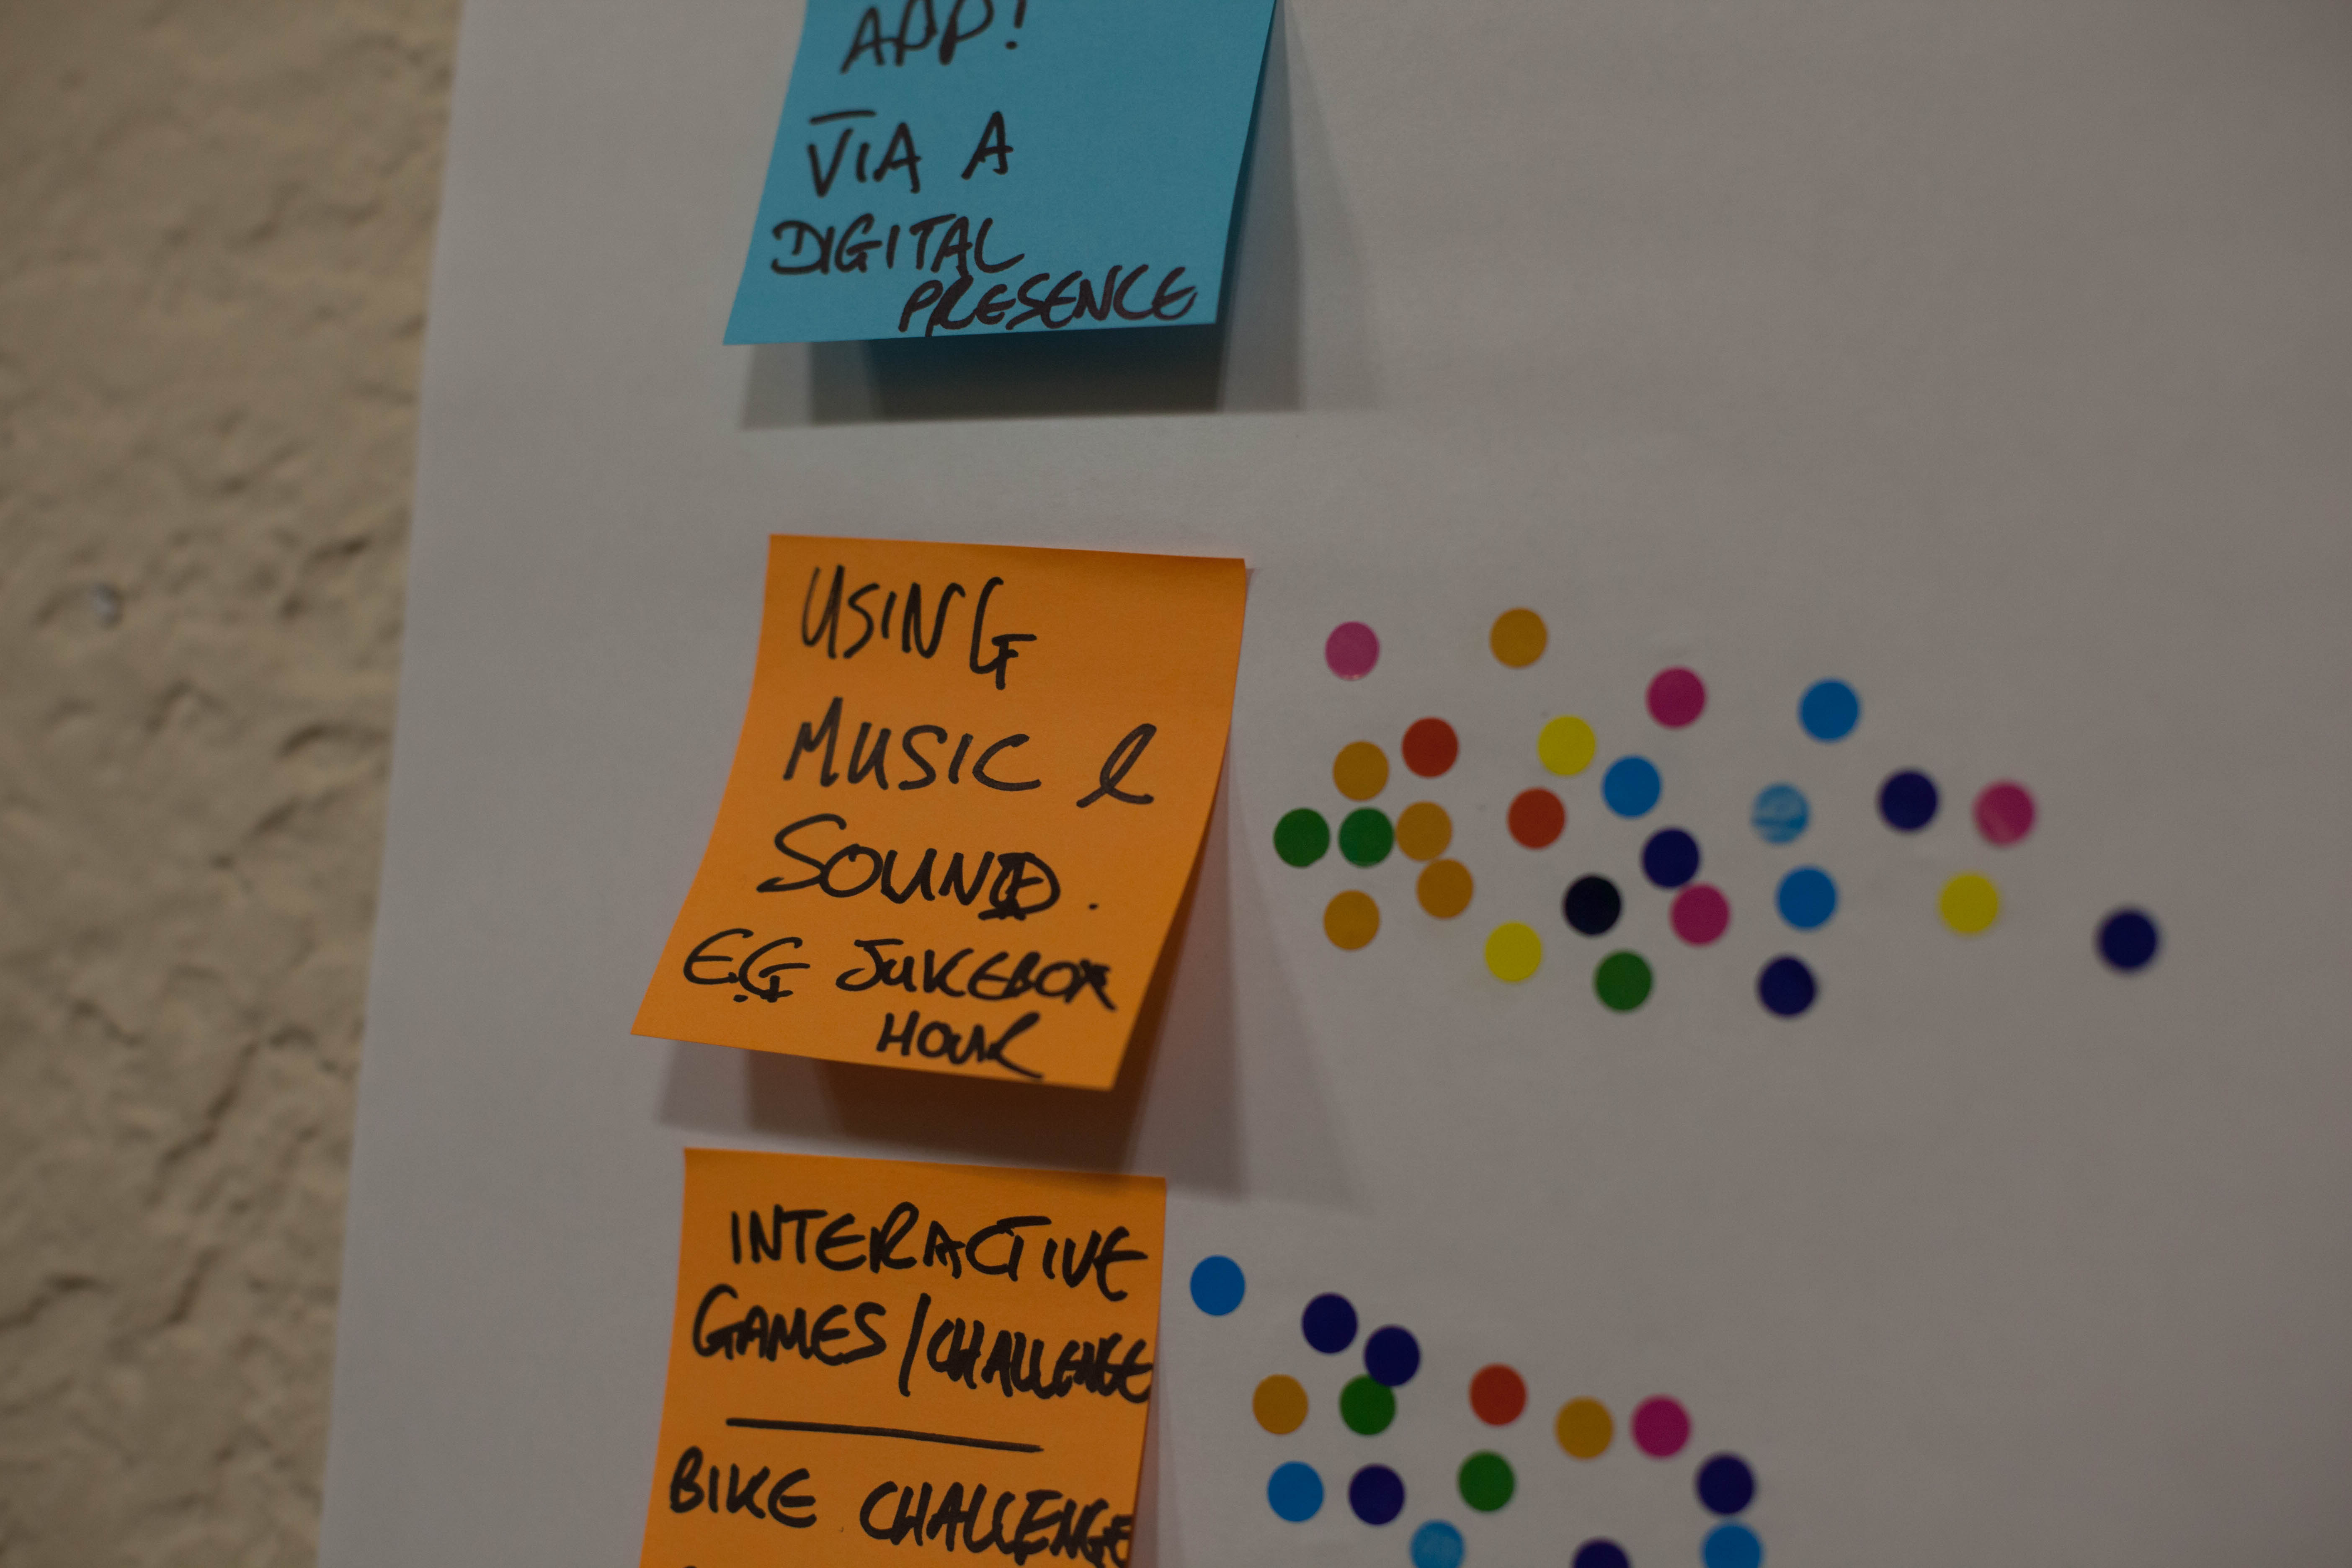 APP!
VIA A
DIGITAL
PRESENCE
USING
MUSIC &
SOUND.
E.G JUKEBOX
HOUR
INTERACTIVE
GAMES/CHALLENGE
BIKE CHALLENGE